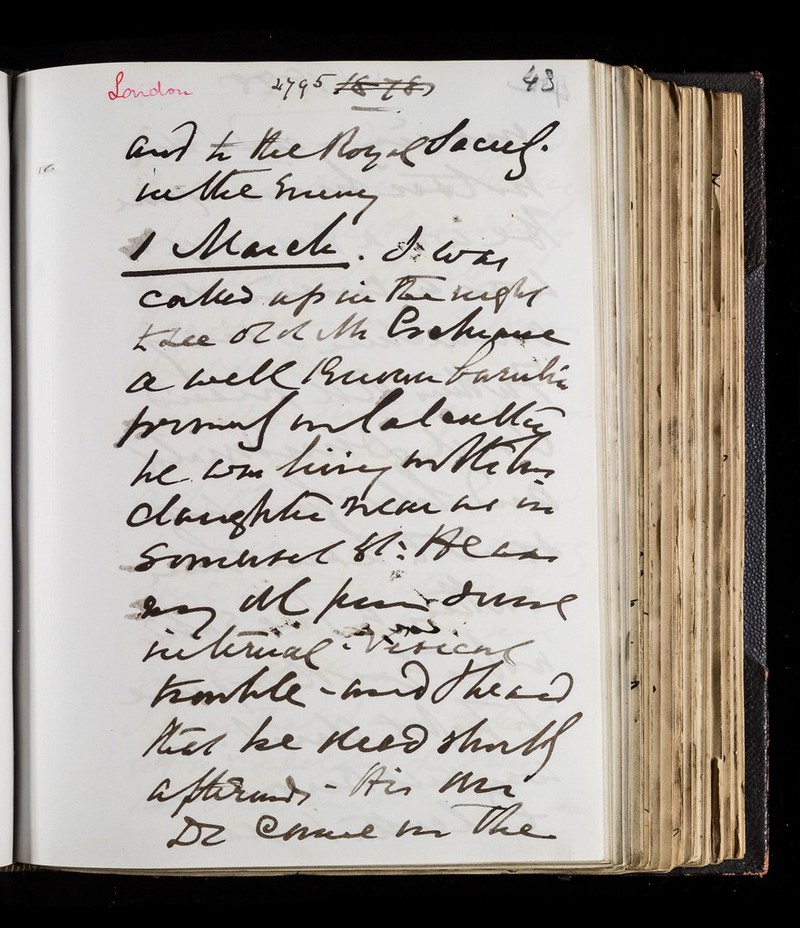 London 2795 1878 43
and to the Royal Society.
in the Evening
1 March. I was
called up in the night
to see old Mr
a well known
formerly in Calcutta
he was living with his
daughter near us in
Somerset St: He was
very ill from some
internal - Vesical
trouble - and I heard
that he died shortly
afterwards - His own
Dr came in the